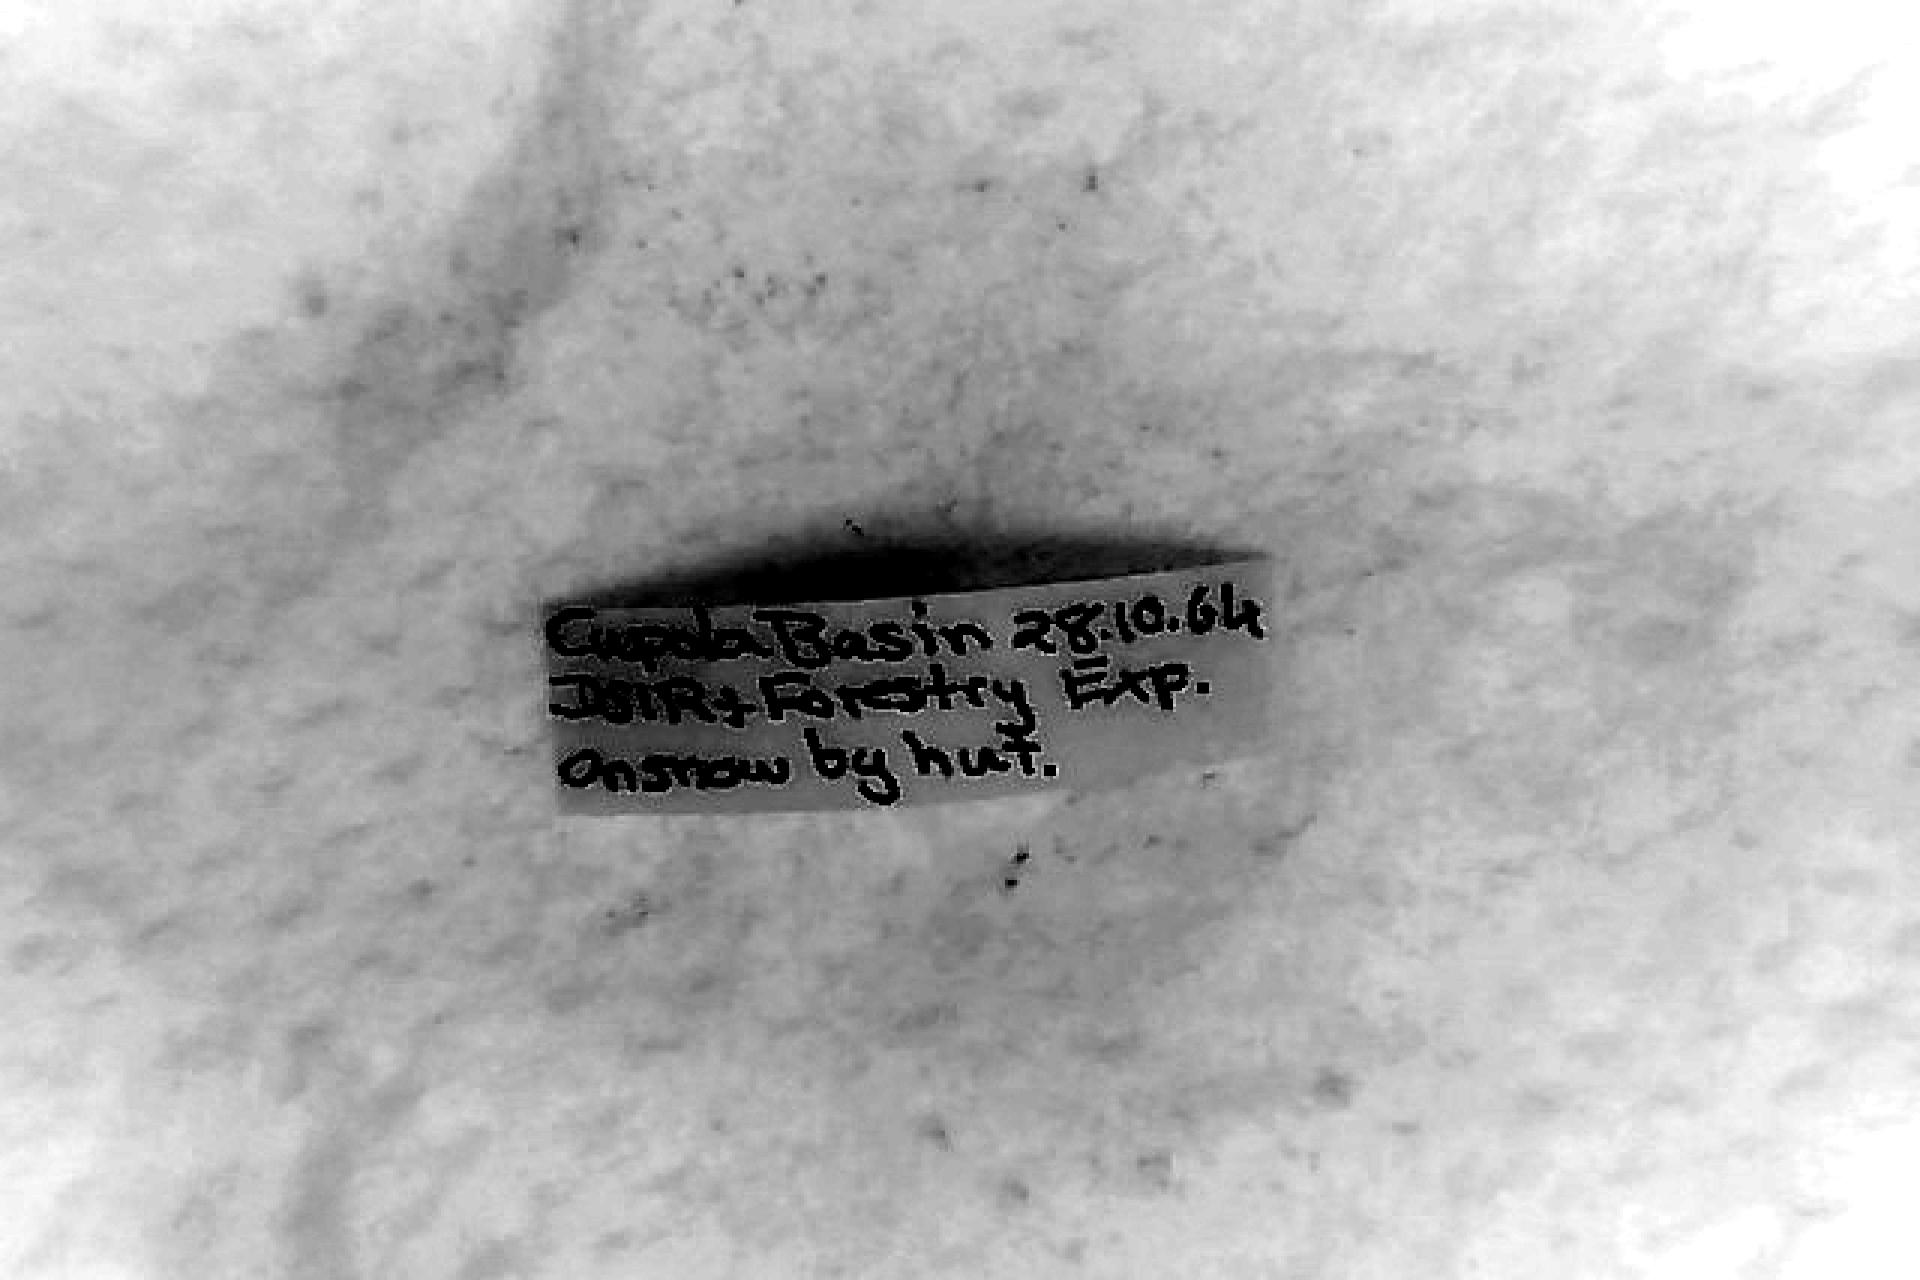 Cupola Basin 28.10.64
DSIR + Forestry Exp.
On snow by hut.